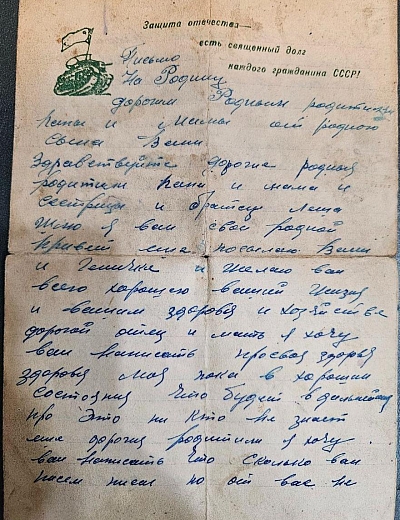 Защита отечества —
есть священный долг
каждого гражданина СССР!
Письмо
На Родину
дорогим Родным родителям
папы и мамы от родного
сына Вани
Здравствуйте дорогие родныя
родители папа и мама и
сестрица и братец Леша
Шлю я вам свой родной
привет еще посылаю Вани
и Геничке и желаю вам
всего хорошего вашей жизня
и вашим здоровья и хозяйстве
дорогой отец и мать я хочу
вам написать просвоя здоровья
здоровья моя пока в хорошим
состояния что будет вдальнейшем
про это ни кто не знает
еще дорогия родители я хочу
вам написать что сколько вам
писем писал но от вас не